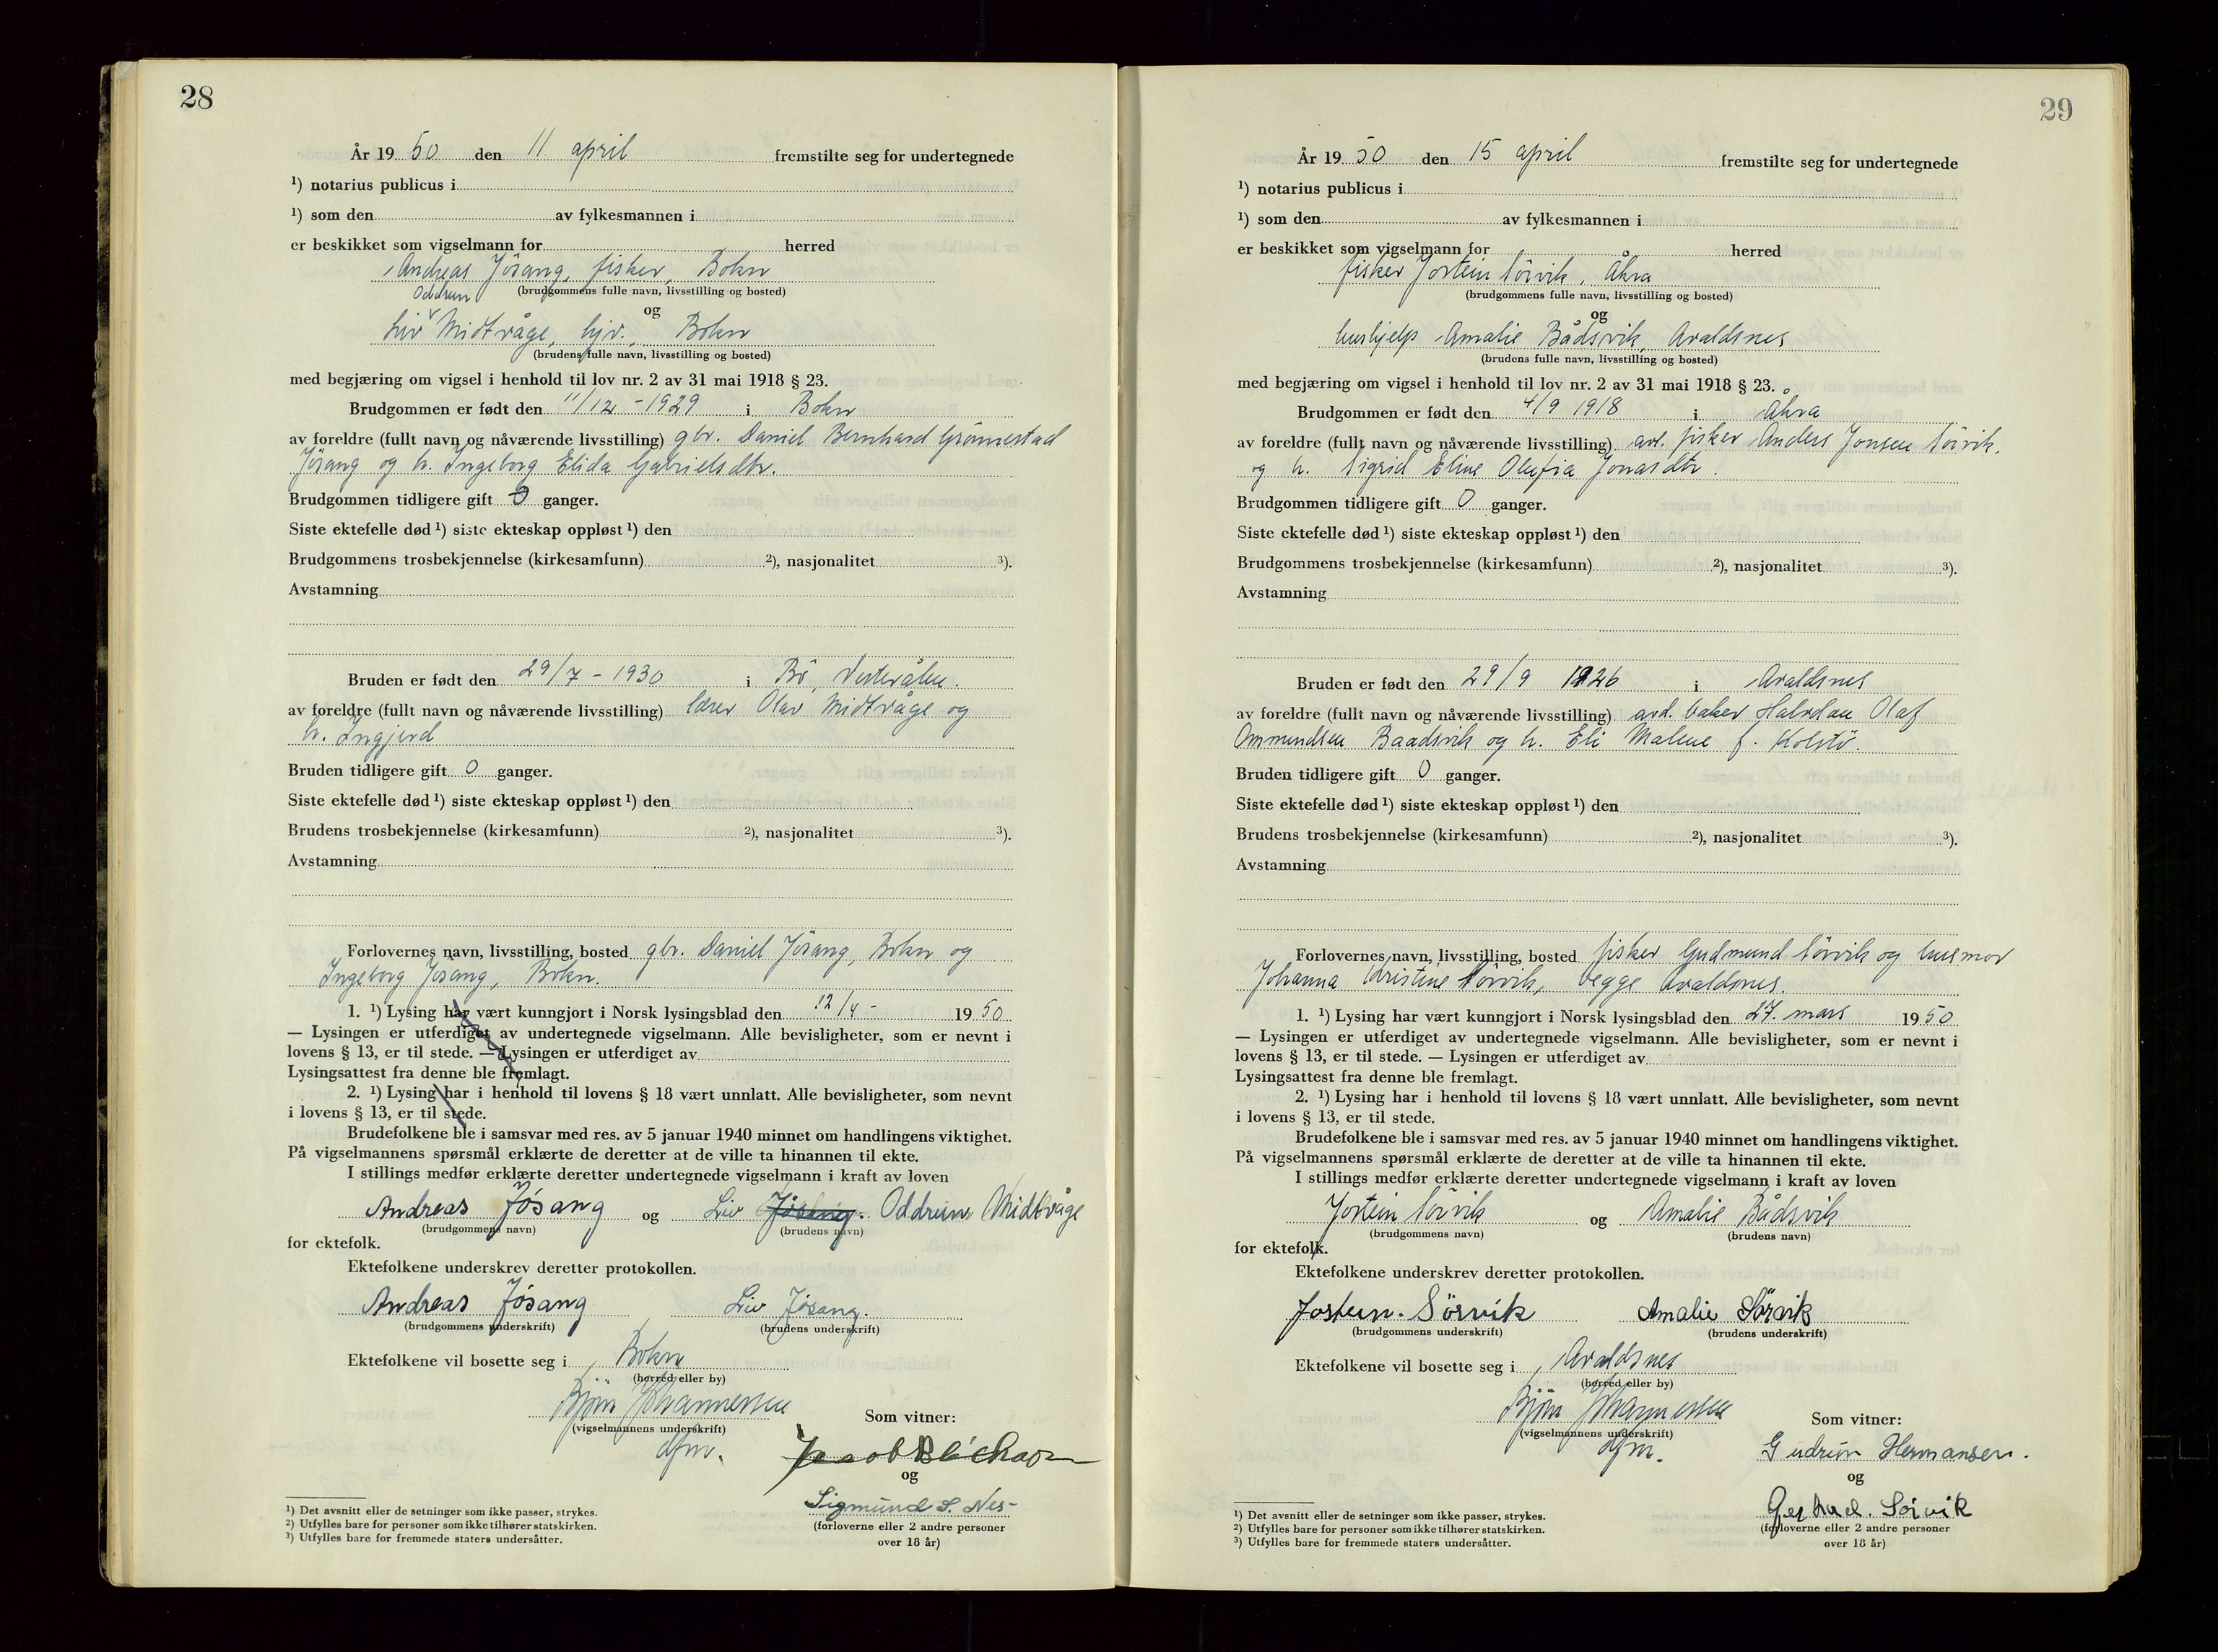 28
År 1950 den 11 april fremstilte seg for undertegnede
¹) notarius publicus i
¹) som den av fylkesmannen i
er beskikket som vigselmann for herred
Andreas Jösang, fisker, Bokn
(brudgommens fulle navn, livsstilling og bosted)
Oddrun
og
Liv Midtvåge, hjv., Bokn
(brudens fulle navn, livsstilling og bosted)
med begjæring om vigsel i henhold til lov nr. 2 av 31 mai 1918 § 23.
Brudgommen er født den 11/12 - 1929 i Bokn
av foreldre (fullt navn og nåværende livsstilling) gbr. Daniel Bernhard Grönnestad
Jösang og h. Ingeborg Elida Gabrielsdtr.
Brudgommen tidligere gift 0 ganger.
Siste ektefelle død ¹) siste ekteskap oppløst ¹) den
Brudgommens trosbekjennelse (kirkesamfunn) ²), nasjonalitet ³).
Avstamning
Bruden er født den 29/7 - 1930 i Bö, Vesterålen.
av foreldre (fullt navn og nåværende livsstilling) lærer Olav Midtvåge og
h. Ingjerd
Bruden tidligere gift 0 ganger.
Siste ektefelle død ¹) siste ekteskap oppløst ¹) den
Brudens trosbekjennelse (kirkesamfunn) ²), nasjonalitet ³).
Avstamning
Forlovernes navn, livsstilling, bosted gbr. Daniel Jösang, Bokn og
Ingeborg Jösang, Bokn.
1. ¹) Lysing har vært kunngjort i Norsk lysingsblad den 12/4 - 1950
— Lysingen er utferdiget av undertegnede vigselmann. Alle bevisligheter, som er nevnt i
lovens § 13, er til stede. — Lysingen er utferdiget av
Lysingsattest fra denne ble fremlagt.
2. ¹) Lysing har i henhold til lovens § 18 vært unnlatt. Alle bevisligheter, som nevnt
i lovens § 13, er til stede.
Brudefolkene ble i samsvar med res. av 5 januar 1940 minnet om handlingens viktighet.
På vigselmannens spørsmål erklærte de deretter at de ville ta hinannen til ekte.
I stillings medfør erklærte deretter undertegnede vigselmann i kraft av loven
Andreas Jósang og Liv Jósang. Oddrun Midtvåge
(brudgommens navn) (brudens navn)
for ektefolk.
Ektefolkene underskrev deretter protokollen.
Andreas Jósang Liv Jósang.
(brudgommens underskrift) (brudens underskrift)
Ektefolkene vil bosette seg i Bokn
(herred eller by)
Björn Johannessen
(vigselmannens underskrift)
dfm.
Som vitner:
og
Sigmund S. Nes-
(forloverne eller 2 andre personer
over 18 år)
¹) Det avsnitt eller de setninger som ikke passer, strykes.
²) Utfylles bare for personer som ikke tilhører statskirken.
³) Utfylles bare for fremmede staters undersåtter.
29
År 1950 den 15 april fremstilte seg for undertegnede
¹) notarius publicus i
¹) som den av fylkesmannen i
er beskikket som vigselmann for herred
fisker Jostein Sörvik, Åkra
(brudgommens fulle navn, livsstilling og bosted)
og
hushjelp Amalie Bådsvik, Avaldsnes
(brudens fulle navn, livsstilling og bosted)
med begjæring om vigsel i henhold til lov nr. 2 av 31 mai 1918 § 23.
Brudgommen er født den 4/9 1918 i Åkra
av foreldre (fullt navn og nåværende livsstilling) avd. fisker Anders Jonsen Sörvik.
og h. Sigrid Eline Olufia Jonasdtr.
Brudgommen tidligere gift 0 ganger.
Siste ektefelle død ¹) siste ekteskap oppløst ¹) den
Brudgommens trosbekjennelse (kirkesamfunn) ²), nasjonalitet ³).
Avstamning
Bruden er født den 29/9 1926 i Avaldsnes
av foreldre (fullt navn og nåværende livsstilling) avd. baker Halvdan Olaf
Ommundsen Baadsvik og h. Eli Malene f. Kolstö.
Bruden tidligere gift 0 ganger.
Siste ektefelle død ¹) siste ekteskap oppløst ¹) den
Brudens trosbekjennelse (kirkesamfunn) ²), nasjonalitet ³).
Avstamning
Forlovernes navn, livsstilling, bosted fisker Gudmund Sörvik og husmor
Johanna Kristine Sörvik, begge Avaldsnes.
1. ¹) Lysing har vært kunngjort i Norsk lysingsblad den 27. mars 1950
— Lysingen er utferdiget av undertegnede vigselmann. Alle bevisligheter, som er nevnt i
lovens § 13, er til stede. — Lysingen er utferdiget av
Lysingsattest fra denne ble fremlagt.
2. ¹) Lysing har i henhold til lovens § 18 vært unnlatt. Alle bevisligheter, som nevnt
i lovens § 13, er til stede.
Brudefolkene ble i samsvar med res. av 5 januar 1940 minnet om handlingens viktighet.
På vigselmannens spørsmål erklærte de deretter at de ville ta hinannen til ekte.
I stillings medfør erklærte deretter undertegnede vigselmann i kraft av loven
Jostein Sörvik og Amalie Bådsvik
(brudgommens navn) (brudens navn)
for ektefolk.
Ektefolkene underskrev deretter protokollen.
Jostein. Sörvik Amalie Sörvik
(brudgommens underskrift) (brudens underskrift)
Ektefolkene vil bosette seg i Avaldsnes
(herred eller by)
Björn Johannessen
(vigselmannens underskrift)
dfm.
Som vitner:
Gudrun Hermansen.
og
Gerhard. Sörvik
(forloverne eller 2 andre personer
over 18 år)
¹) Det avsnitt eller de setninger som ikke passer, strykes.
²) Utfylles bare for personer som ikke tilhører statskirken.
³) Utfylles bare for fremmede staters undersåtter.